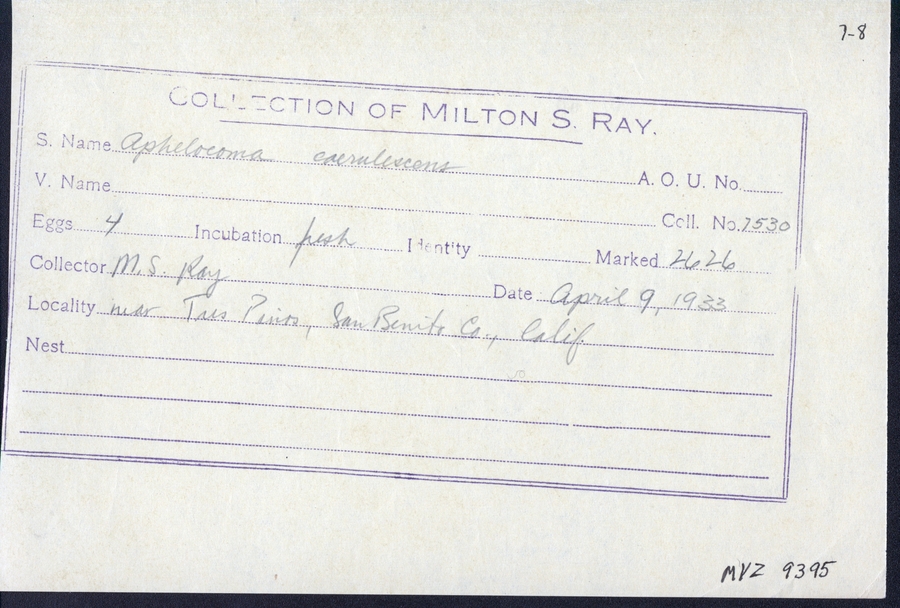 7-8
COLLECTION OF MILTON S. RAY.
S. Name Aphelocoma caerulescens A. O. U. No.
V. Name Coll. No. 7530
Eggs 4 Incubation fresh Identity Marked 2626
Collector M. S. Ray Date April 9, 1933
Locality near Tres Pinos, San Benito Co., Calif.
Nest
MVZ 9395